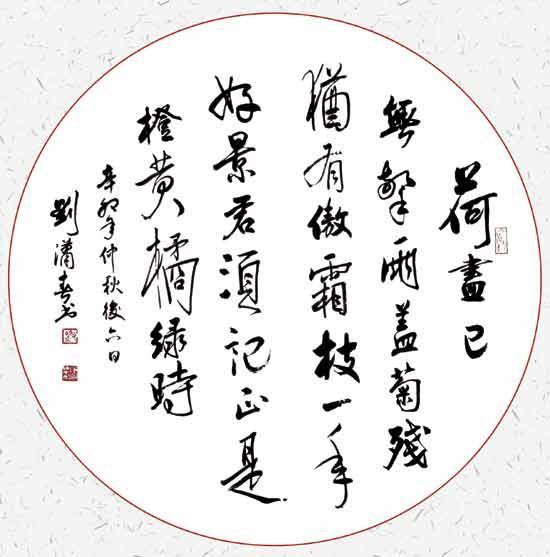 荷盡已
無擎雨盖菊殘
猶有傲霜枝一年
好景君須記正是
橙黄橘緑時
辛卯年仲秋後六日
劉瀟春书